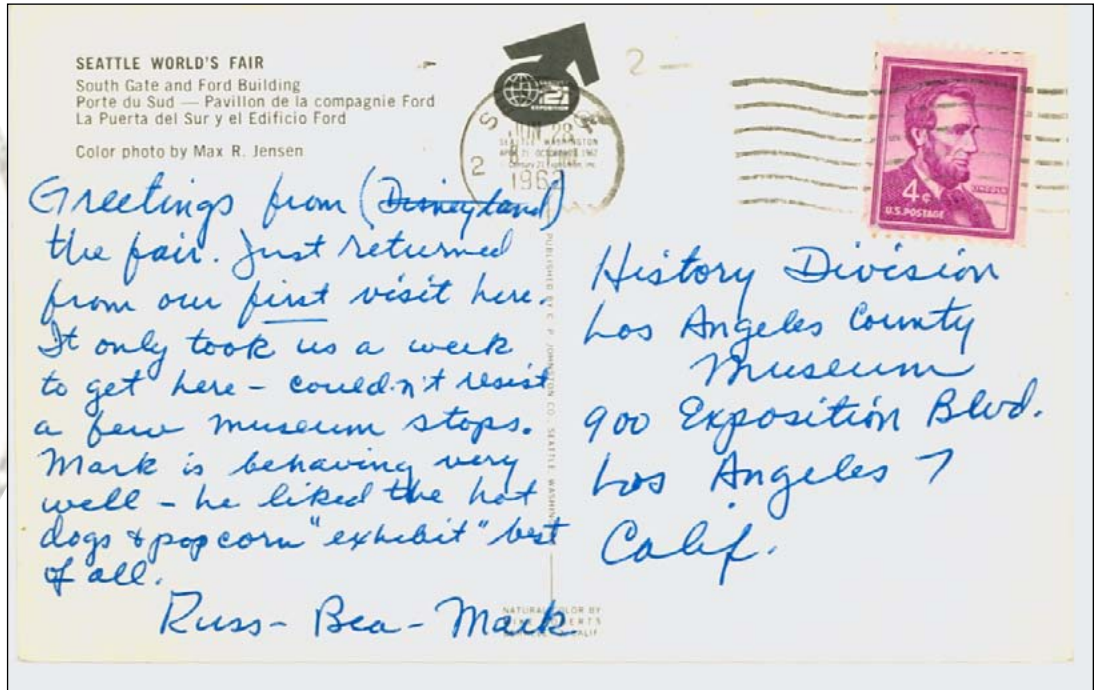 SEATTLE WORLD'S FAIR
South Gate and Ford Building
Porte du Sud — Pavillon de la compagnie Ford
La Puerta del Sur y el Edificio Ford
Color photo by Max R. Jensen
2 —
21
EXPOSITION
S
JUN 28
SEATTLE WASHINGTON
2
1962
4¢
LINCOLN
U.S. POSTAGE
Greetings from (Disneyland)
the fair. Just returned
from our first visit here.
It only took us a week
to get here – couldn't resist
a few museum stops.
Mark is behaving very
well – he liked the hot
dogs & popcorn "exhibit" best
of all.
Russ – Bea – Mark
PUBLISHED BY C. P. JOHNSTON CO., SEATTLE, WASHIN
NATURAL COLOR BY
CALIF
History Division
Los Angeles County
Museum
900 Exposition Blvd.
Los Angeles 7
Calif.